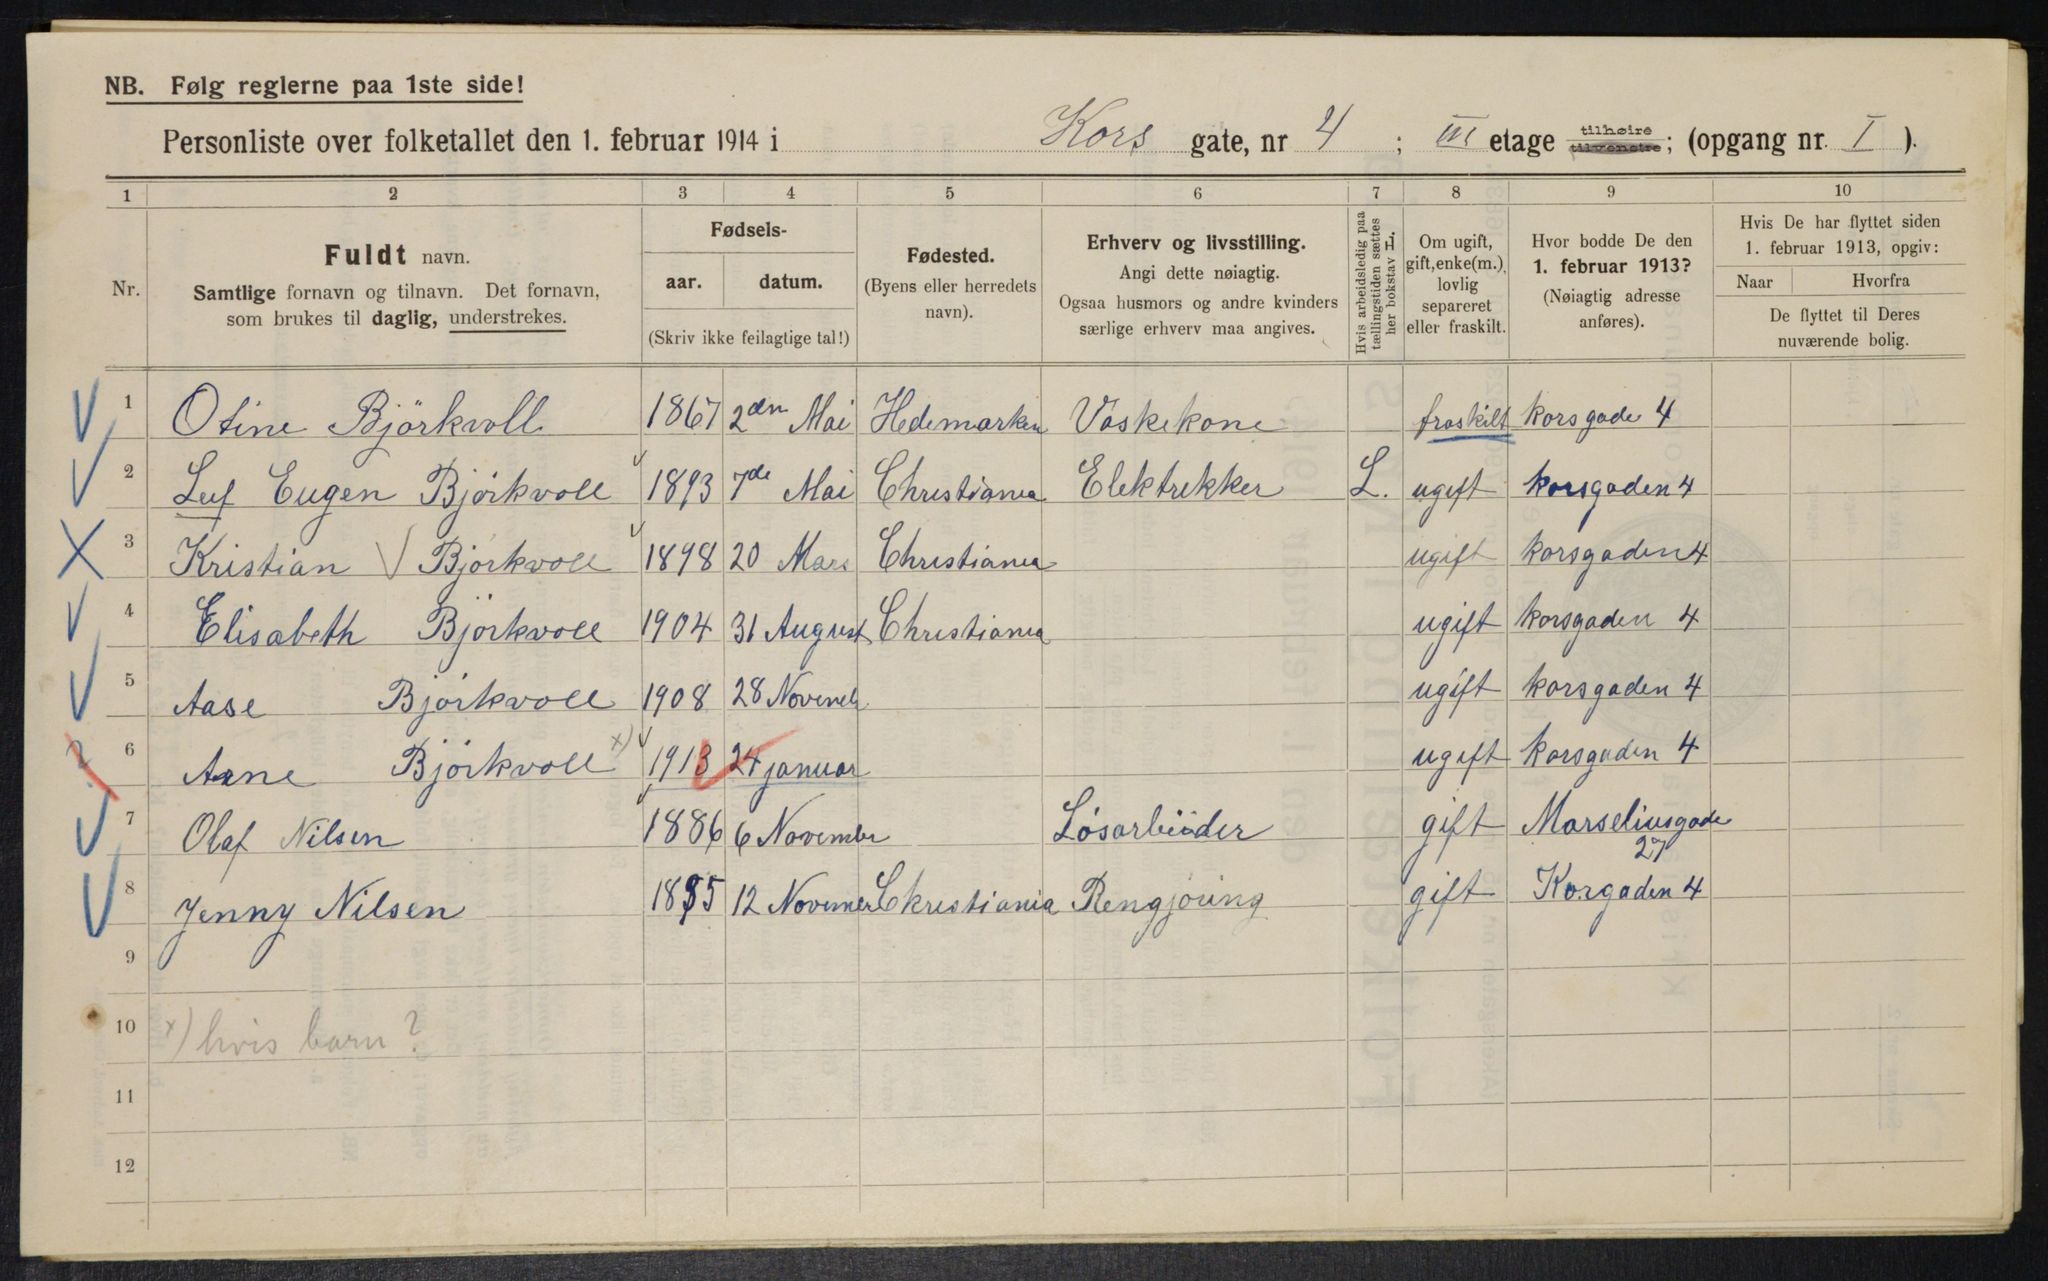 NB. Følg reglerne paa 1ste side!
Personliste over folketallet den 1. februar 1914 i Kors gate, nr 4 ; III etage tilhøire tilvenstre; (opgang nr. I ).
1 2 3 4 5 6 7 8 9 10
Nr.
Fuldt navn.
Samtlige fornavn og tilnavn. Det fornavn,
som brukes til daglig, understrekes.
Fødsels-
aar. datum.
(Skriv ikke feilagtige tal!)
Fødested.
(Byens eller herredets
navn).
Erhverv og livsstilling.
Angi dette nøiagtig.
Ogsaa husmors og andre kvinders
særlige erhverv maa angives.
Hvis arbeidsledig paa
tællingstiden sættes
her bokstav L.
Om ugift,
gift, enke(m.),
lovlig
separeret
eller fraskilt.
Hvor bodde De den
1. februar 1913?
(Nøiagtig adresse
anføres).
Hvis De har flyttet siden
1. februar 1913, opgiv:
Naar Hvorfra
De flyttet til Deres
nuværende bolig.
1 Otine Björkvoll 1867 2den Mai Hedemarken Vaskekone fraskilt korsgade 4
2 Leif Eugen Björkvoll 1893 7de Mai Christiania Elektrekker L. ugift korsgaden 4
3 Kristian Björkvoll 1898 20 Mars Christiania ugift korsgaden 4
4 Elisabeth Björkvoll 1904 31 August Christiania ugift korsgaden 4
5 Aase Björkvoll 1908 28 Novemb ugift korsgaden 4
6 Arne Björkvoll x) 1913 24 januar ugift korsgaden 4
7 Olaf Nilsen 1886 6 November Løsarbeider gift Marseliusgade
27
8 Jenny Nilsen 1885 12 November Christiania Rengjöring gift Korgaden 4
9
10 x) hvis barn?
11
12